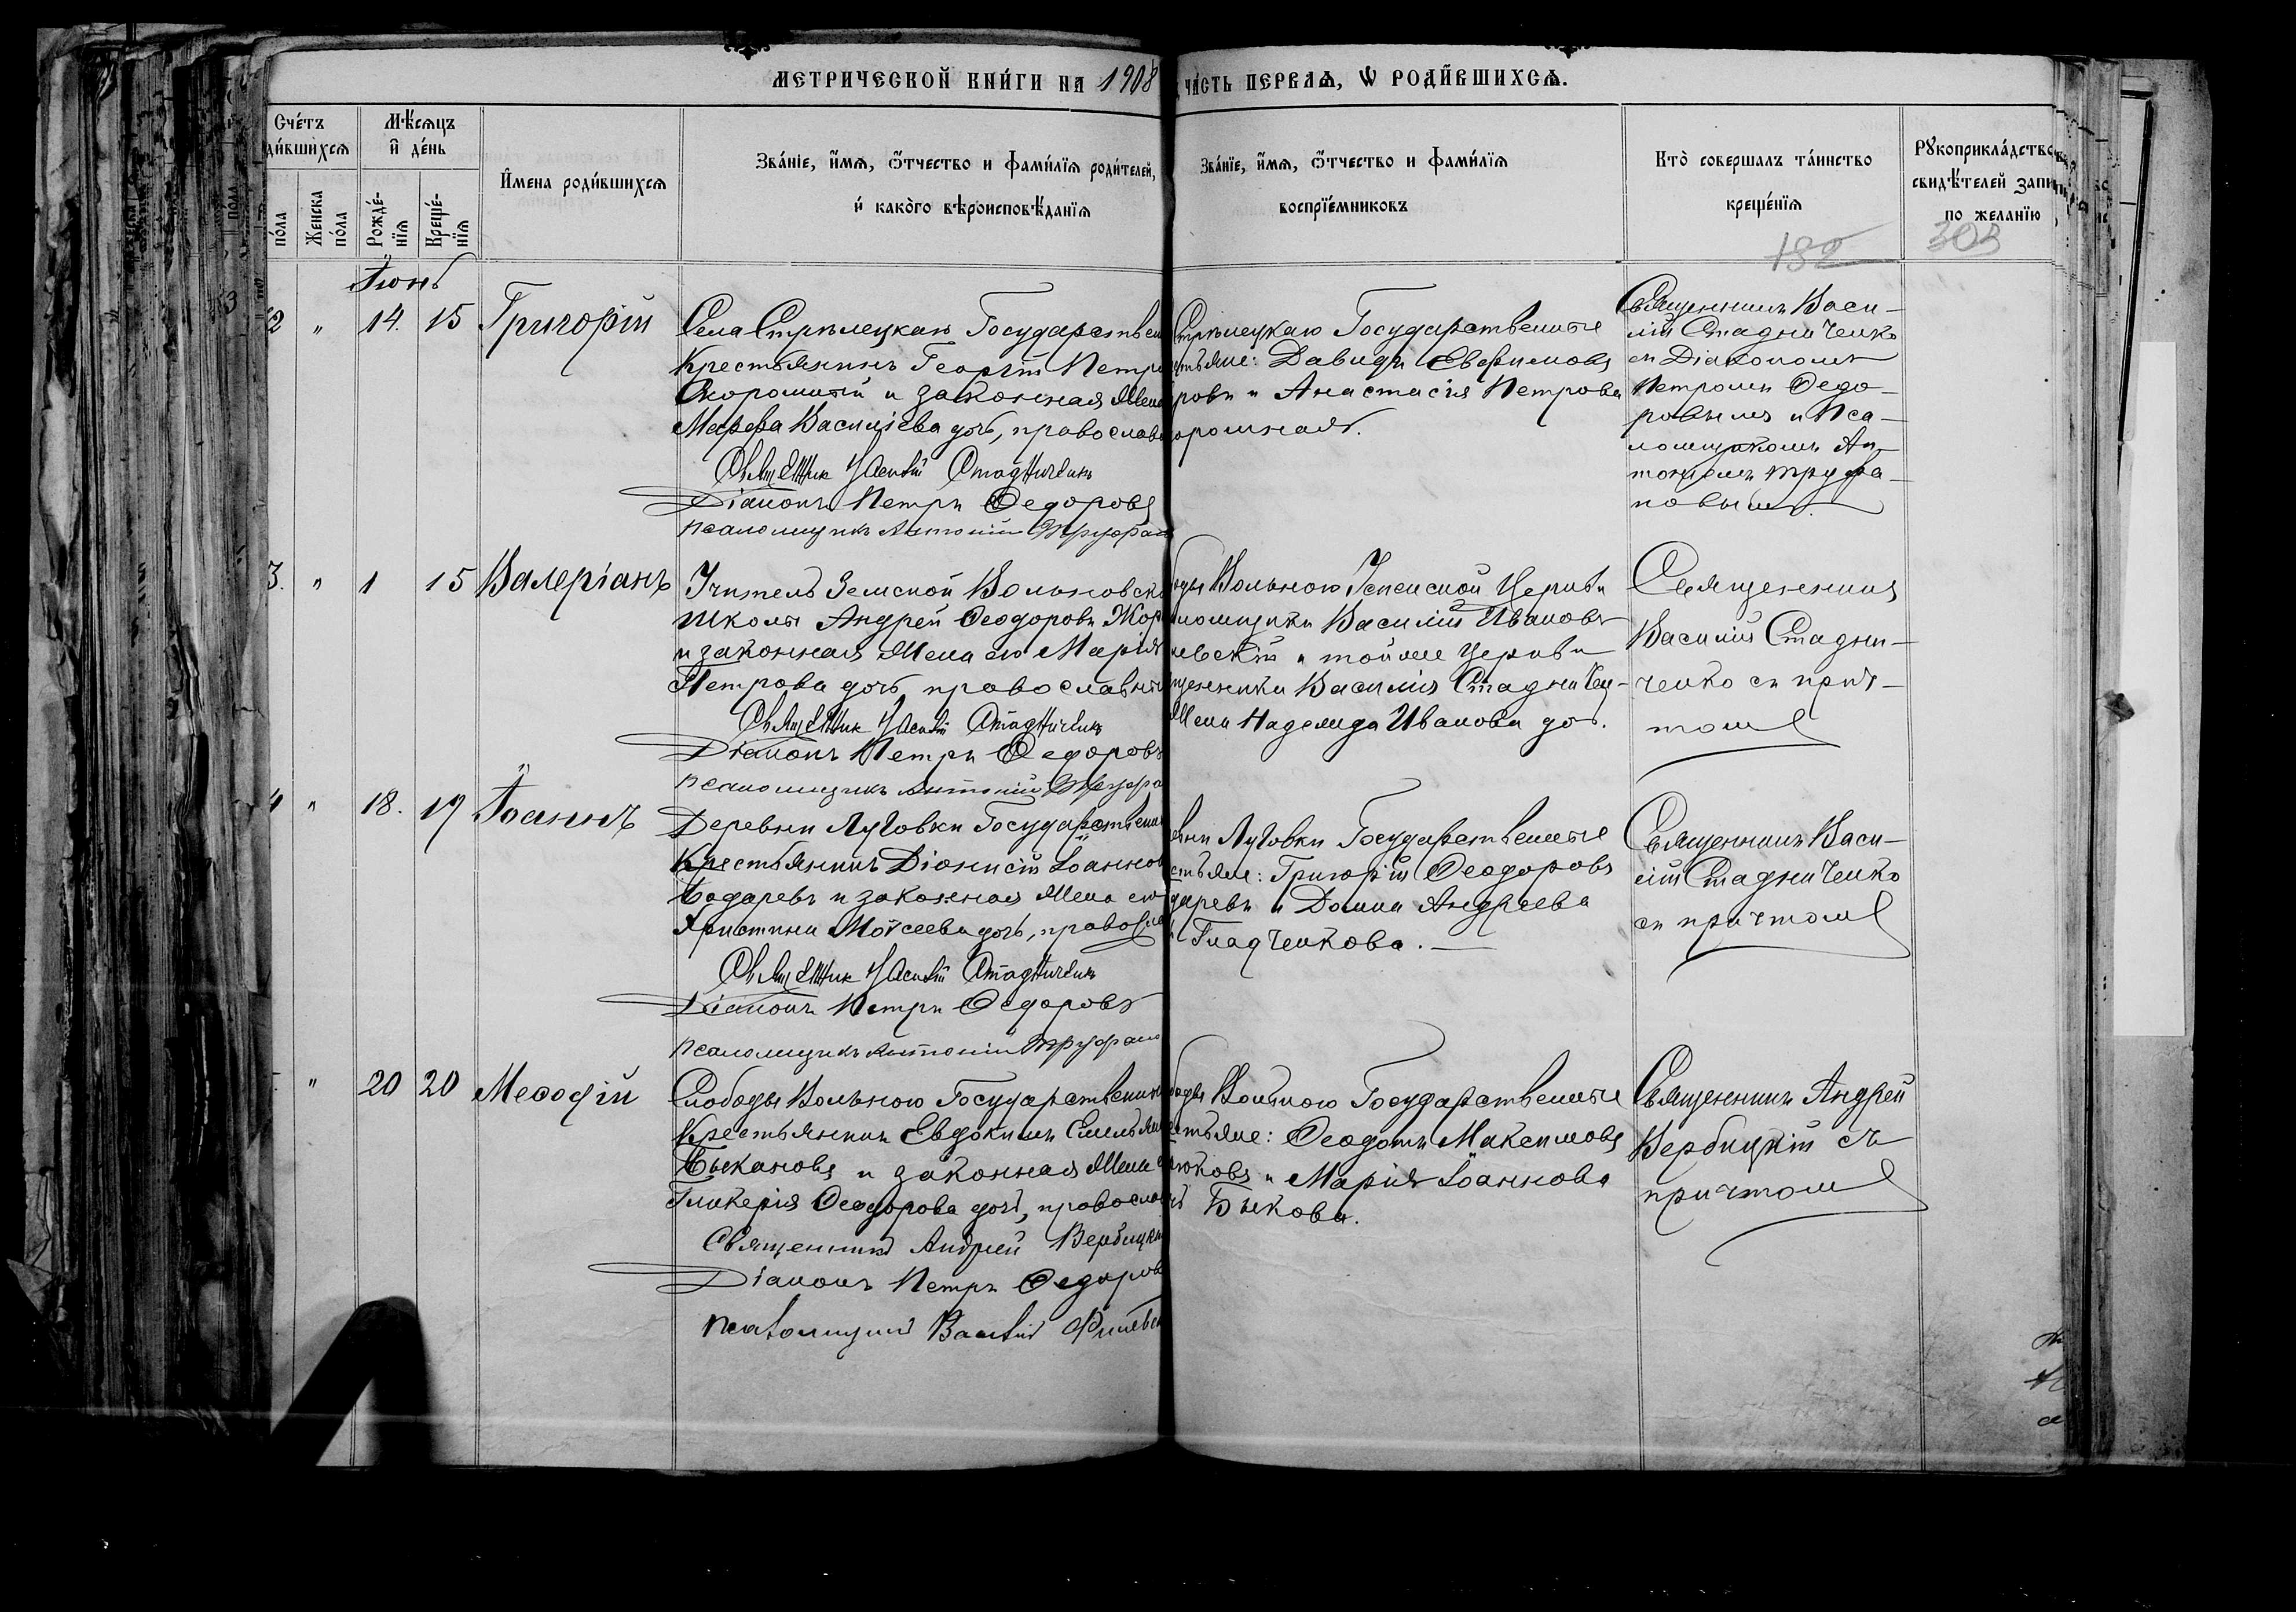 МЕТРИЧЕСКОЙ КНИ́ГИ НА 1908 ЧА́СТЬ ПЕРВАѦ, Ѡ РОДИ́ВШИХСѦ.
Счéтъ
ди́вшихсѧ
Мѣ́сѧцъ
и҆ де́нь
пóла
Женска
пóла
Рождé-
нїѧ
Крещé-
нїѧ
И҆мена роди́вшихсѧ
Звáнїе, и҆́мѧ, ѻ҆́тчество и фами́лїѧ роди́телей,
и҆ какóго вѣроисповѣ́данїѧ
Звáнїе, и҆́мѧ, ѻ҆́тчество и фами́лїѧ
воспрїéмниковъ
Ктò совершалъ тáинство
крещéнїѧ
Рꙋкоприклáдство
свидѣ́телей запи
по желáнїю
182
303
Іюнь
2 " 14. 15 Григорій
Села Стрѣлецкаго Государствен
Крестьянинъ Георгій Петро
Скорошный и законная Жена
Марѳа Василіева дочь, православ
Священник Василій Стадниченко
Діаконъ Петръ Ѳедоровъ
Псаломщикъ Антоній Труфан
Стрѣлецкаго Государственные
стьяне: Давидъ Евѳимовъ
ровъ и Анастасія Петрова
орошная.
Священникъ Васи-
лій Стадниченко
съ Діакономъ
Петромъ Ѳедо-
ровымъ и Пса-
ломщикомъ Ан-
тоніемъ Труфа-
новымъ.
3. " 1 15 Валеріанъ
Учитель Земской Вольновско
Школы Андрей Ѳеодоровъ Жор
и законная Жена его Марія
Петрова дочь, православны
Священник Василій Стадниченко
Діаконъ Петръ Ѳедоровъ
Псаломщикъ Антоній Труфа
оды Вольного Успенской Церкви
ломщикъ Василій Ивановъ
левскій и тойже Церкви
щенника Василія Стадничен-
Жена Надежда Иванова доч.
Священникъ
Василій Стадни-
ченко съ прич-
томъ
4 " 18. 19 Іоаннъ
Деревни Луговки Государствен
Крестьянинъ Діонисій Іоаннов
Бодаревъ и законная Жена его
Христина Моѵсеева дочь, правосла
Священник Василій Стадниченко
Діаконъ Петръ Ѳедоровъ
Псаломщикъ Антоній Труфано
евни Луговки Государственные
стьяне: Григорій Ѳеодоровъ
даревъ и Домна Андреева
Гладченкова.
Священникъ Васи-
лій Стадниченко
съ причтомъ
" 20 20 Меѳодій
Слободы Вольного Государственн
Крестьянинъ Евдокимъ Емельян
Быкановъ и законная Жена е
Гликерія Ѳеодорова дочь, правосла
Священникъ Андрей Вербицкі
Діаконъ Петръ Ѳедоров
Псаломщикъ Василій Филевск
боды Вольного Государственные
стьяне: Ѳеодотъ Максимовъ
рюковъ и Марія Іоаннова
Быкова.
Священникъ Андрей
Вербицкій съ
причтомъ